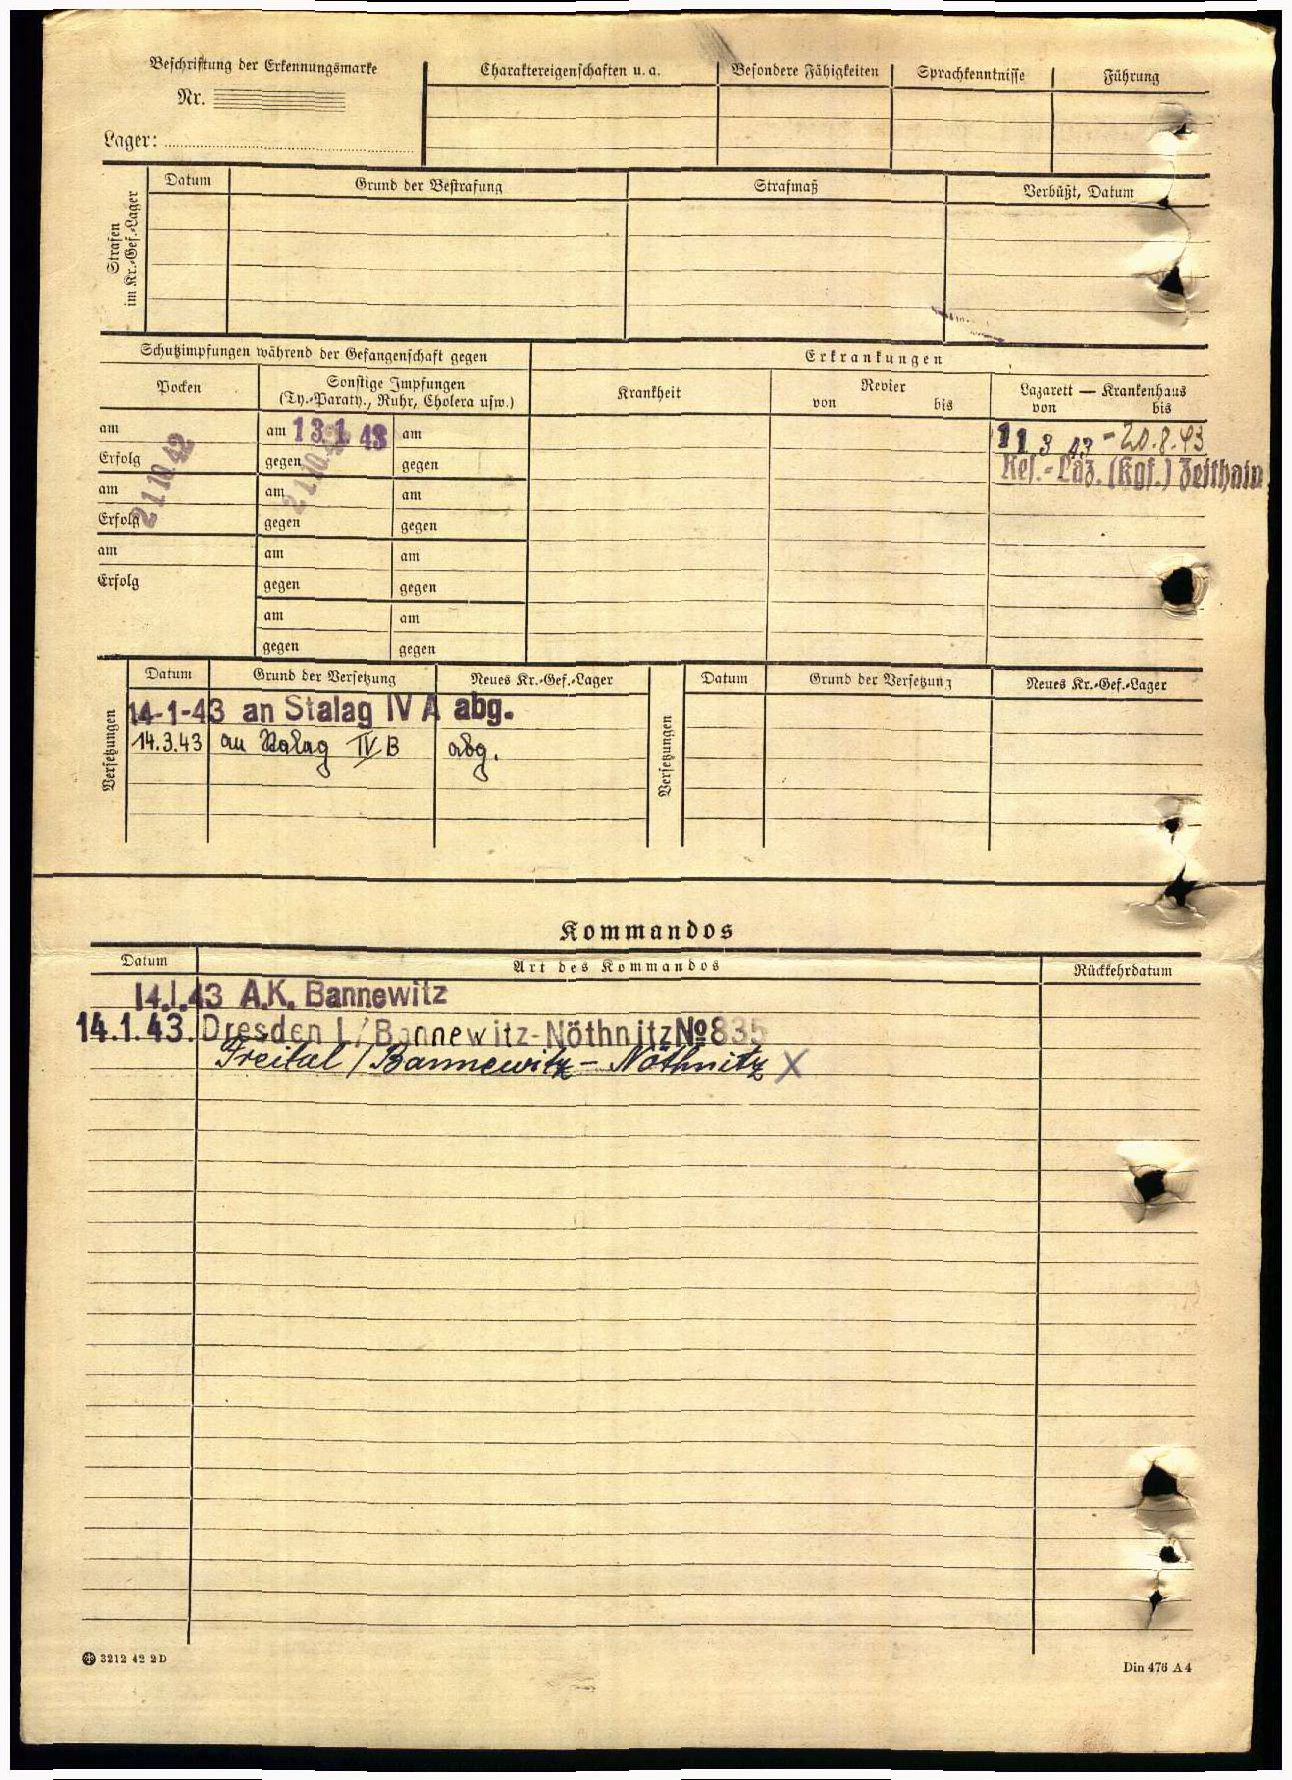 Beschriftung der Erkennungsmarke
Nr.
Lager:
Charaktereigenschaften u. a.
Besondere Fähigkeiten
Sprachkenntnisse
Führung
Strafen im Kr.-Gef.-Lager
Datum
Grund der Bestrafung
Strafmaß
Verbüßt, Datum
Schutzimpfungen während der Gefangenschaft gegen
Erkrankungen
Pocken
Sonstige Impfungen
(Ty.-Paraty., Ruhr, Cholera usw.)
Krankheit
Revier
von bis
Lazarett — Krankenhaus
von bis
am
Erfolg
21 10 42
am
Erfolg
am
Erfolg
am 13. 1. 43
gegen
21.10.42
am
gegen
am
gegen
am
gegen
am
gegen
am
gegen
am
gegen
am
gegen
11 3 43 - 20.8.43
Res.-Laz. (Kgf.) Zeithain
Versetzungen
Datum
Grund der Versetzung
Neues Kr.-Gef.-Lager
14-1-43 an Stalag IV A abg.
14.3.43 an Stalag IV B abg.
Versetzungen
Datum
Grund der Versetzung
Neues Kr.-Gef.-Lager
Kommandos
Datum
Art des Kommandos
Rückkehrdatum
14.1.43 A.K. Bannewitz
14.1.43. Dresden I/Bannewitz-Nöthnitz № 835
Freital / Bannewitz – Nöthnitz X
3212 42 2D
Din 476 A4